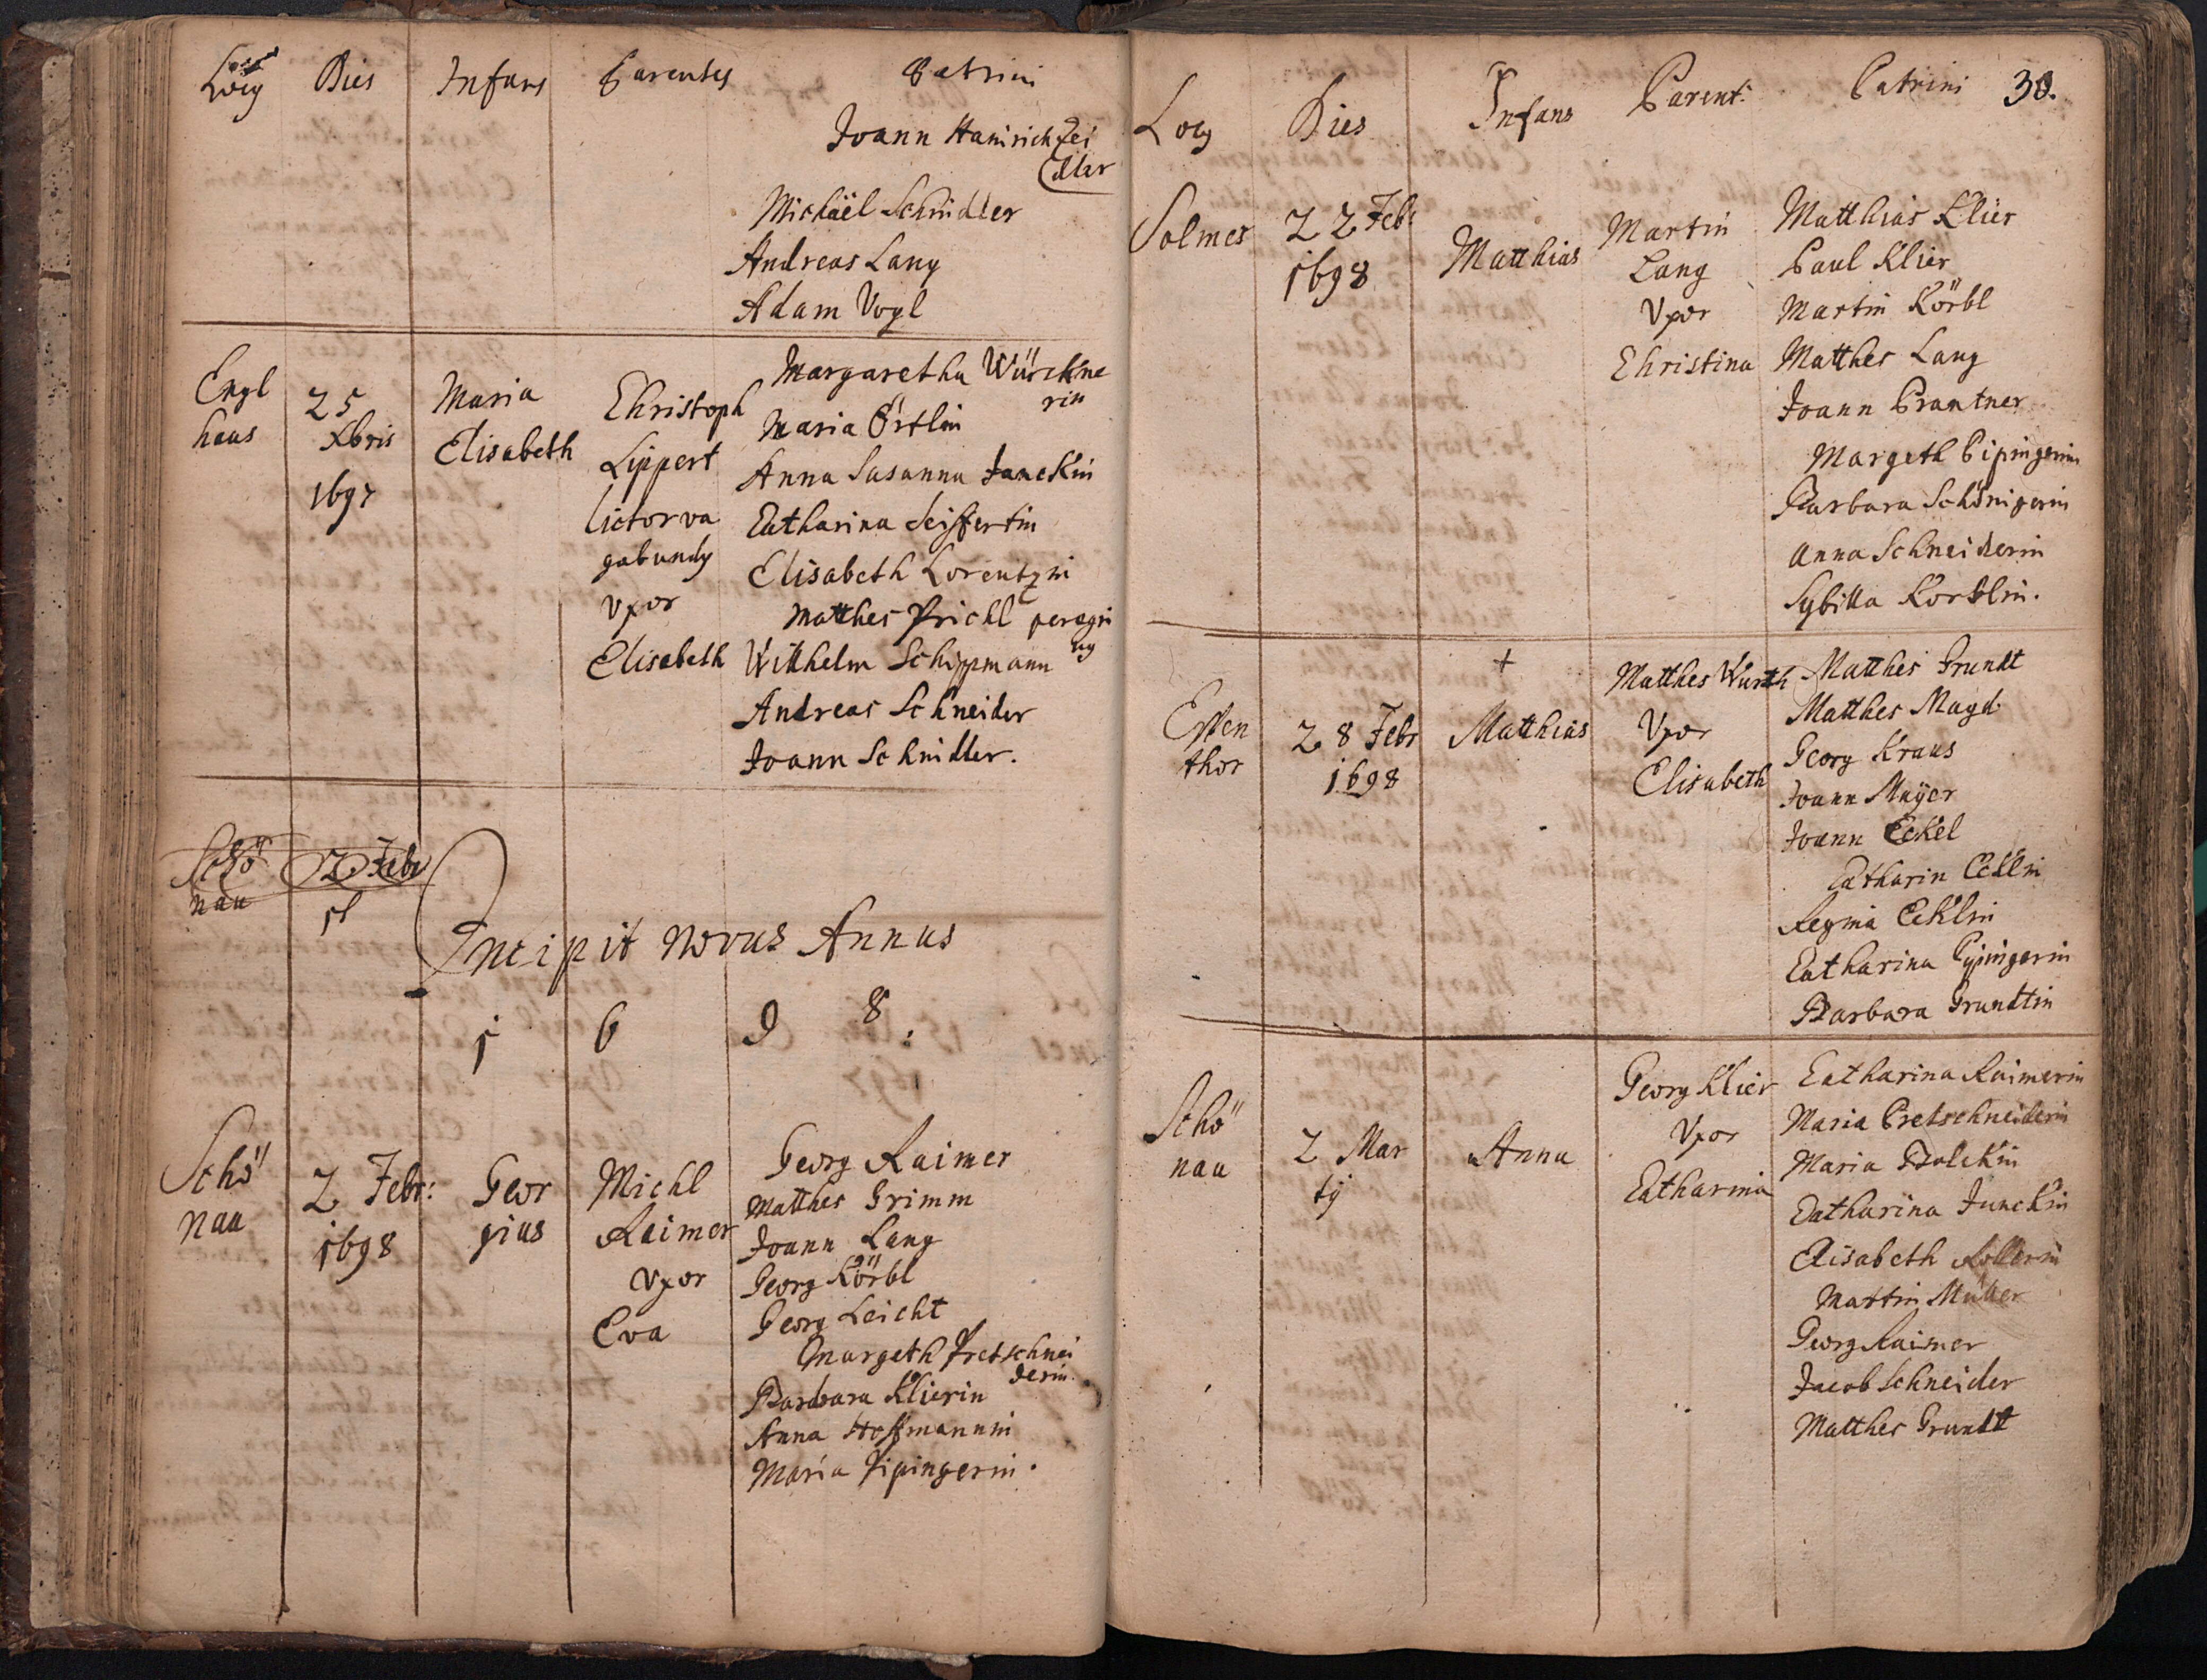 Locus Dies Infans Parentes Patrini
Joann Hainrich Zei
dler
Michäel Schindler
Andreas Lang
Adam Vogl
Engl
haus
25
Xbris
1697
Maria
Elisabeth
Christoph
Lippert
lictor va
gabundus
Vxor
Elisabeth
Margaretha Würckne
rin
Maria Örtlin
Anna Susanna Janckin
Catharina Seiffertin
Elisabeth Lorentzin
Matthes Prichl peregri
nus
Wilhelm Schippmann
Andreas Schneider
Joann Schindler.
Schö
nau
2 Febr
Incipit Novus Annus
1 6 9 8.
Schö
nau
2 Febr:
1698
Geor
gius
Michl
Raimer
Vxor
Eva
Georg Raimer
Matthes Grimm
Joann Lang
Georg Körbl
Georg Leicht
Margeth Pretschnei
derin
Barbara Klierin
Anna Hoffmannin
Maria Pipingerin.
Locus Dies Infans Parent: Patrini 30.
Solmes
22 Feb:
1698
Matthias
Martin
Lang
Vxor
Christina
Matthias Klier
Paul Klier
Martin Körbl
Matthes Lang
Joann Prantner
Margeth Pipingerin
Barbara Schönigerin
Anna Schneiderin
Sybilla Korblin.
Essen
thor
28 Febr
1698
+
Matthias
Matthes Wurth
Vxor
Elisabeth
Matthes Grundt
Matthes Magd
Georg Kraus
Joann Mayer
Joann Eckel
Catharin Ecklin
Regina Ecklin
Catharina Pipingerin
Barbara Grundtin
Schö
nau
2 Mar
tij
Anna
Georg Klier
Vxor
Catharina
Catharina Raimerin
Maria Pretschneiderin
Maria Bolckin
Catharina Junckin
Elisabeth Kollerin
Martin Müller
Georg Raimer
Jacob Schneider
Matthes Grundt